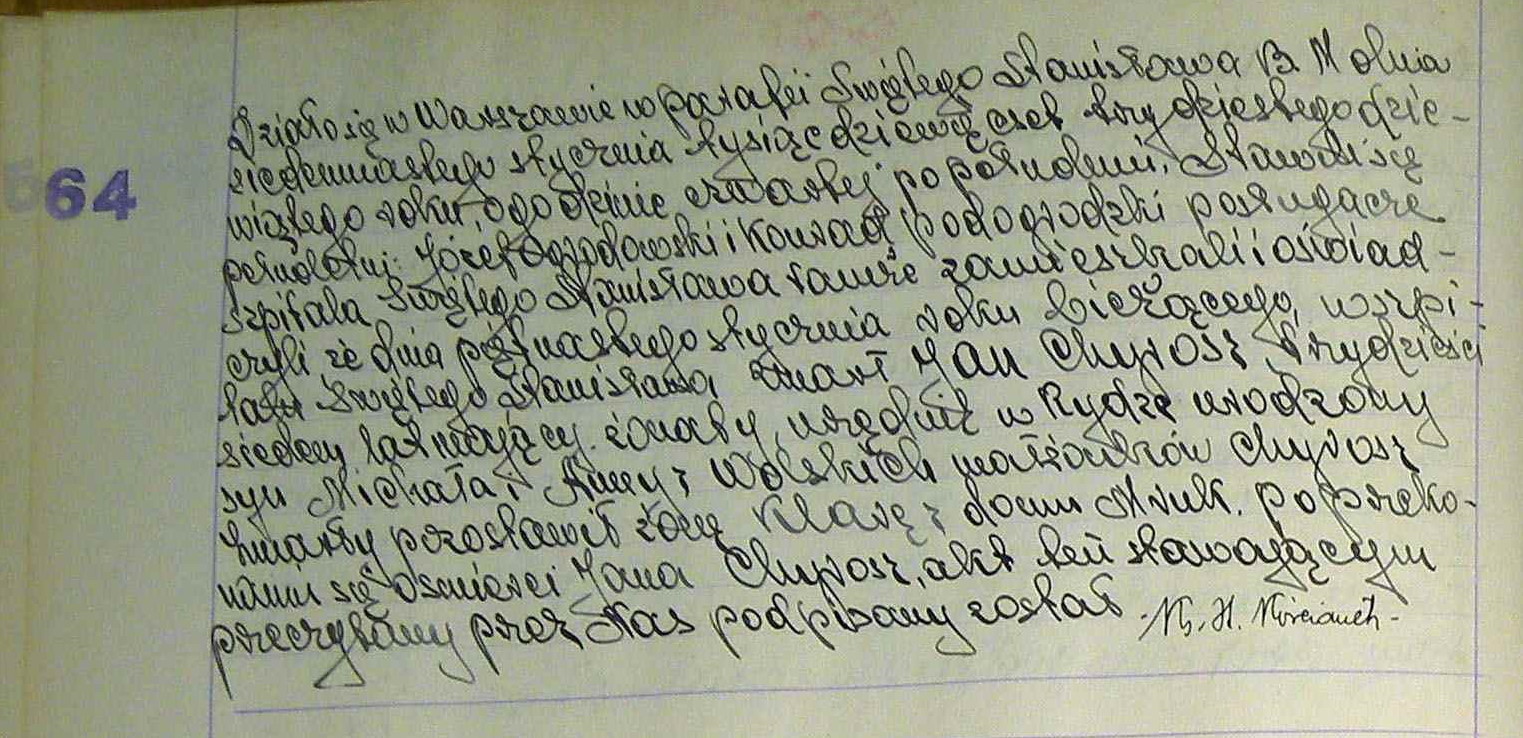 64
Działo się w Warszawie w parafii Świętego Stanisława B. M dnia
siedemnastego stycznia tysiąc dziewięćset trzydziestego dzie-
wiątego roku, o godzinie czwartej po południu. Stawili się
pełnoletni: Józef Ogrodowski i Konrad Podogrodzki posługacze
szpitala Świętego Stanisława tamże zamieszkali i oświad-
czyli że dnia piętnastego stycznia roku bieżącego, w szpi-
talu Świętego Stanisława, zmarł Jan Chyrosz, trzydzieści
siedem lat mający, żonaty, urzędnik w Rydze urodzony
syn Michała i Anny z Wolskich małżonków Chyrosz
Zmarły pozostawił żonę Klarę z domu Mruk. po przeko-
naniu się o śmierci Jana Chyrosz, akt ten stawającym
przeczytany przez Nas podpisany został - Ks. H.